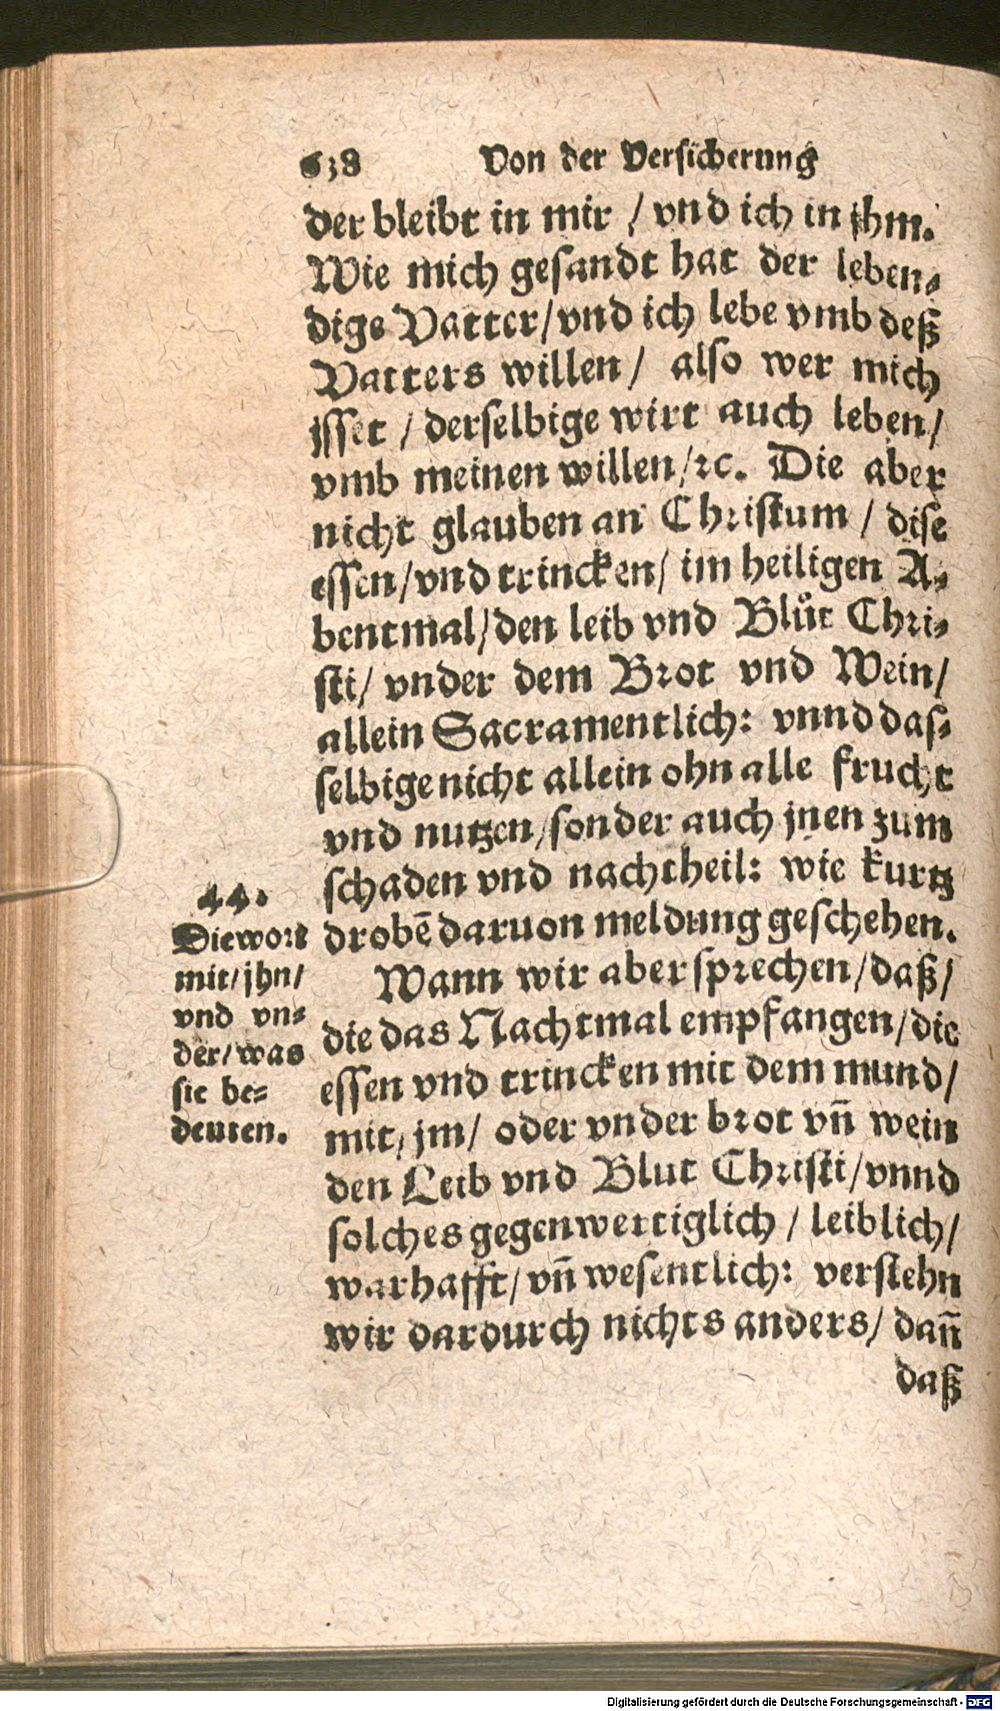 638 Von der Versicherung
der bleibt in mir / vnd ich in jhm.
Wie mich gesandt hat der leben⸗
dige Vatter/vnd ich lebe vmb deß
Vatters willen/ also wer mich
jsset / derselbige wirt auch leben/
vmb meinen willen/ꝛc. Die aber
nicht glauben an Christum / dise
essen/vnd trincken/ im heiligen A⸗
bentmal/den leib vnd Blůt Chri⸗
sti/ vnder dem Brot vnd Wein/
allein Sacramentlich: vnnd das⸗
selbige nicht allein ohn alle frucht
vnd nutzen/sonder auch jnen zum
schaden vnd nachtheil: wie kurtz
drobē daruon meldung geschehen.
44.
Die wort
mit/jhn/
vnd vn⸗
der/was
sie be⸗
deuten.
Wann wir aber sprechen/daß/
die das Nachtmal empfangen/die
essen vnd trincken mit dem mund/
mit, jm/ oder vnder brot vñ wein
den Leib vnd Blut Christi/vnnd
solches gegenwertiglich / leiblich/
warhafft/vñ wesentlich: verstehn
wir dardurch nichts anders/ dañ
daß
Digitalisierung gefördert durch die Deutsche Forschungsgemeinschaft - DFG